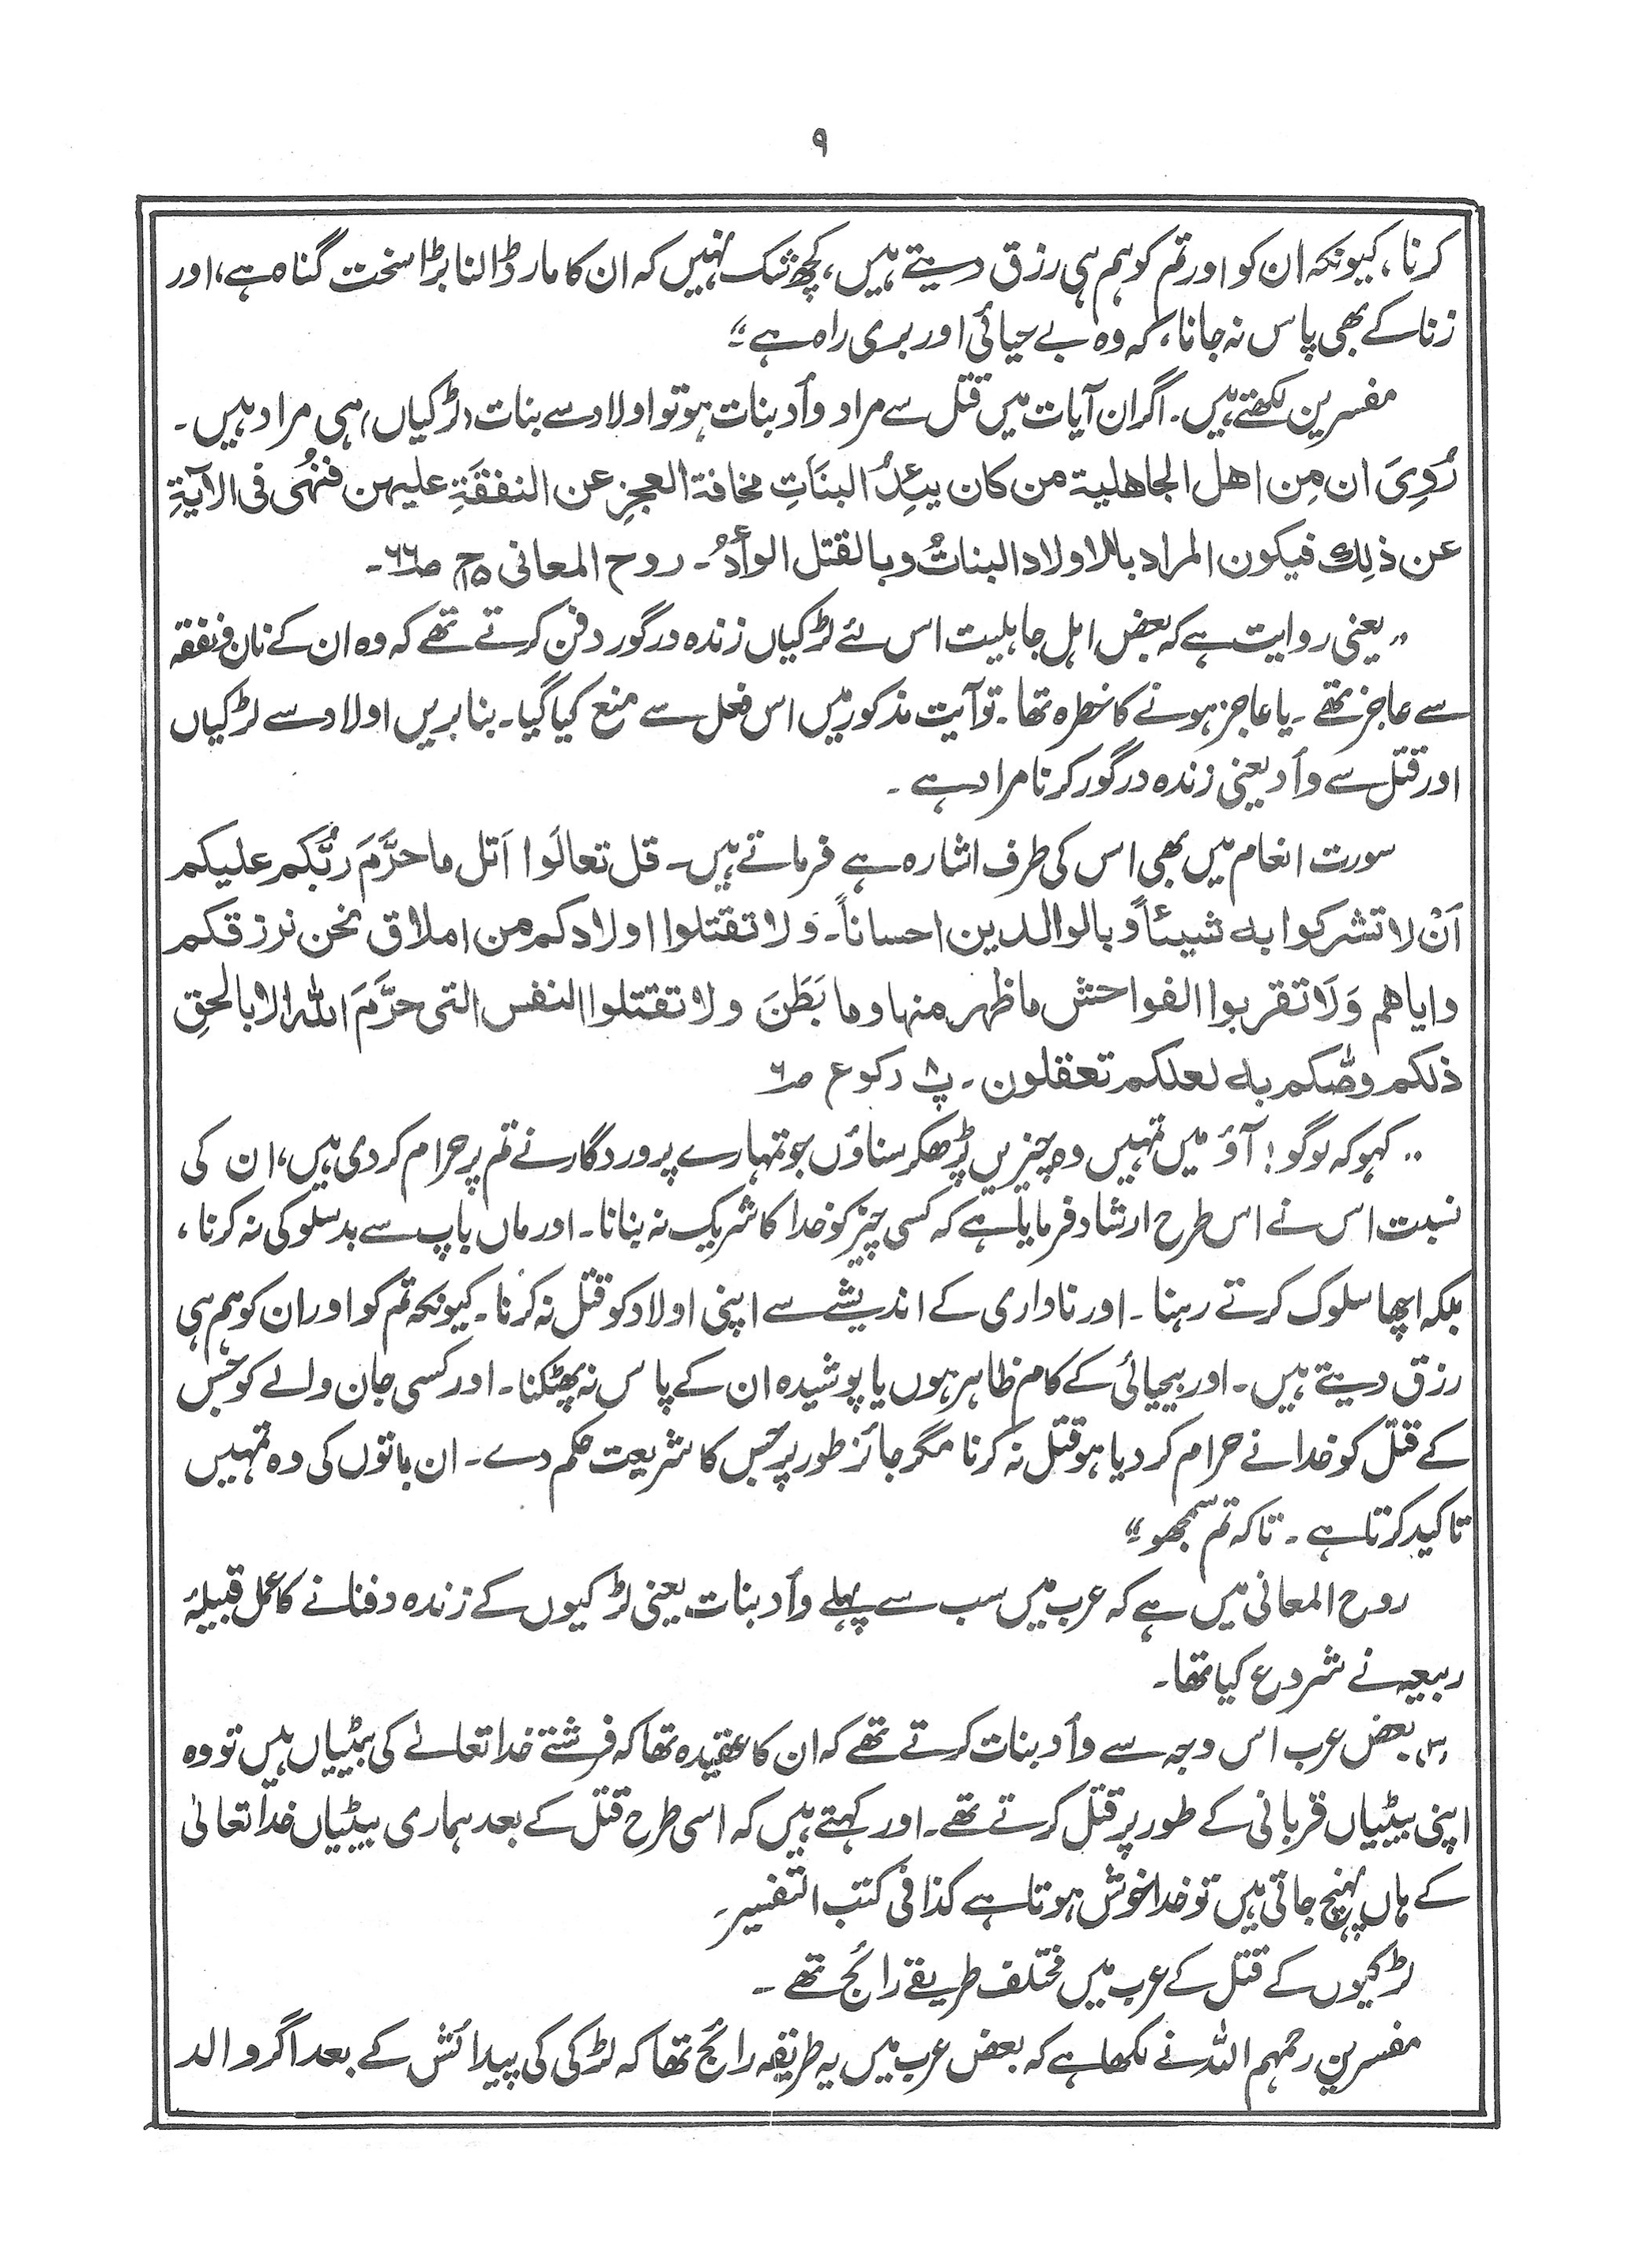 ۹
کرنا، کیونکہ ان کو اور تم کو ہم ہی رزق دیتے ہیں، کچھ شک نہیں کہ ان کا مار ڈالنا بڑا سخت گناہ ہے، اور
زنا کے بھی پاس نہ جانا، کہ وہ بے حیائی اور بری راہ ہے۔“
مفسرین لکھتے ہیں۔ اگر ان آیات میں قتل سے مراد وأد بنات ہو تو اولاد سے بنات (لڑکیاں) ہی مراد ہیں۔
رُوِیَ ان مِن اھل الجاھلیۃ من کان یئِدُ البنَاتِ مخافۃ العجزِ عن النفقَۃِ علیھن فنُھی فی الآیَۃِ
عن ذٰلِك فیکون المراد بالاولاد البناتُ وبالقتل الوأدُ۔ روح المعانی ج ۱۵ ص ۶۶۔
”یعنی روایت ہے کہ بعض اہل جاہلیت اس لئے لڑکیاں زندہ درگور دفن کرتے تھے کہ وہ ان کے نان و نفقہ
سے عاجز تھے۔ یا عاجز ہونے کا خطرہ تھا۔ تو آیت مذکور میں اس فعل سے منع کیا گیا۔ بنا بریں اولاد سے لڑکیاں
اور قتل سے وأد یعنی زندہ درگور کرنا مراد ہے۔
سورت انعام میں بھی اس کی طرف اشارہ ہے فرماتے ہیں۔ قل تعالَوا اَتل ما حرَّمَ ربُّکم علیکم
اَنْ لا تشرکوا بہ شیئاً وبالوالدین احساناً۔ وَلا تقتلوا اولادکم من املاق نحن نرزقکم
وایاھم وَلَا تقربوا الفواحش ما ظھر منھا وما بَطَنَ ولا تقتلوا النفس التی حرَّمَ اللہ الا بالحقِ
ذلکم وصّٰکم بہ لعلکم تعقلون۔ پ ۸ رکوع ۶
”کہو کہ لوگو! آؤ میں تمہیں وہ چیزیں پڑھ کر سناؤں جو تمہارے پروردگار نے تم پر حرام کردی ہیں، ان کی
نسبت اس نے اس طرح ارشاد فرمایا ہے کہ کسی چیز کو خدا کا شریک نہ بنانا۔ اور ماں باپ سے بدسلوکی نہ کرنا،
بلکہ اچھا سلوک کرتے رہنا۔ اور ناداری کے اندیشے سے اپنی اولاد کو قتل نہ کرنا۔ کیونکہ تم کو اور ان کو ہم ہی
رزق دیتے ہیں۔ اور بیحیائی کے کام ظاہر ہوں یا پوشیدہ ان کے پاس نہ پھٹکنا۔ اور کسی جان والے کو جس
کے قتل کو خدا نے حرام کر دیا ہو قتل نہ کرنا مگر جائز طور پر جس کا شریعت حکم دے۔ ان باتوں کی وہ تمہیں
تاکید کرتا ہے۔ تاکہ تم سمجھو۔“
روح المعانی میں ہے کہ عرب میں سب سے پہلے وأد بنات یعنی لڑکیوں کے زندہ دفنانے کا عمل قبیلۂ
ربیعہ نے شروع کیا تھا۔
(۳) بعض عرب اس وجہ سے وأد بنات کرتے تھے کہ ان کا عقیدہ تھا کہ فرشتے خدا تعالےٰ کی بیٹیاں ہیں تو وہ
اپنی بیٹیاں قربانی کے طور پر قتل کرتے تھے۔ اور کہتے ہیں کہ اسی طرح قتل کے بعد ہماری بیٹیاں خدا تعالیٰ
کے ہاں پہنچ جاتی ہیں تو خدا خوش ہوتا ہے کذا فی کتب التفسیر۔
لڑکیوں کے قتل کے عرب میں مختلف طریقے رائج تھے۔
مفسرین رحمہم اللہ نے لکھا ہے کہ بعض عرب میں یہ طریقہ رائج تھا کہ لڑکی کی پیدائش کے بعد اگر والد